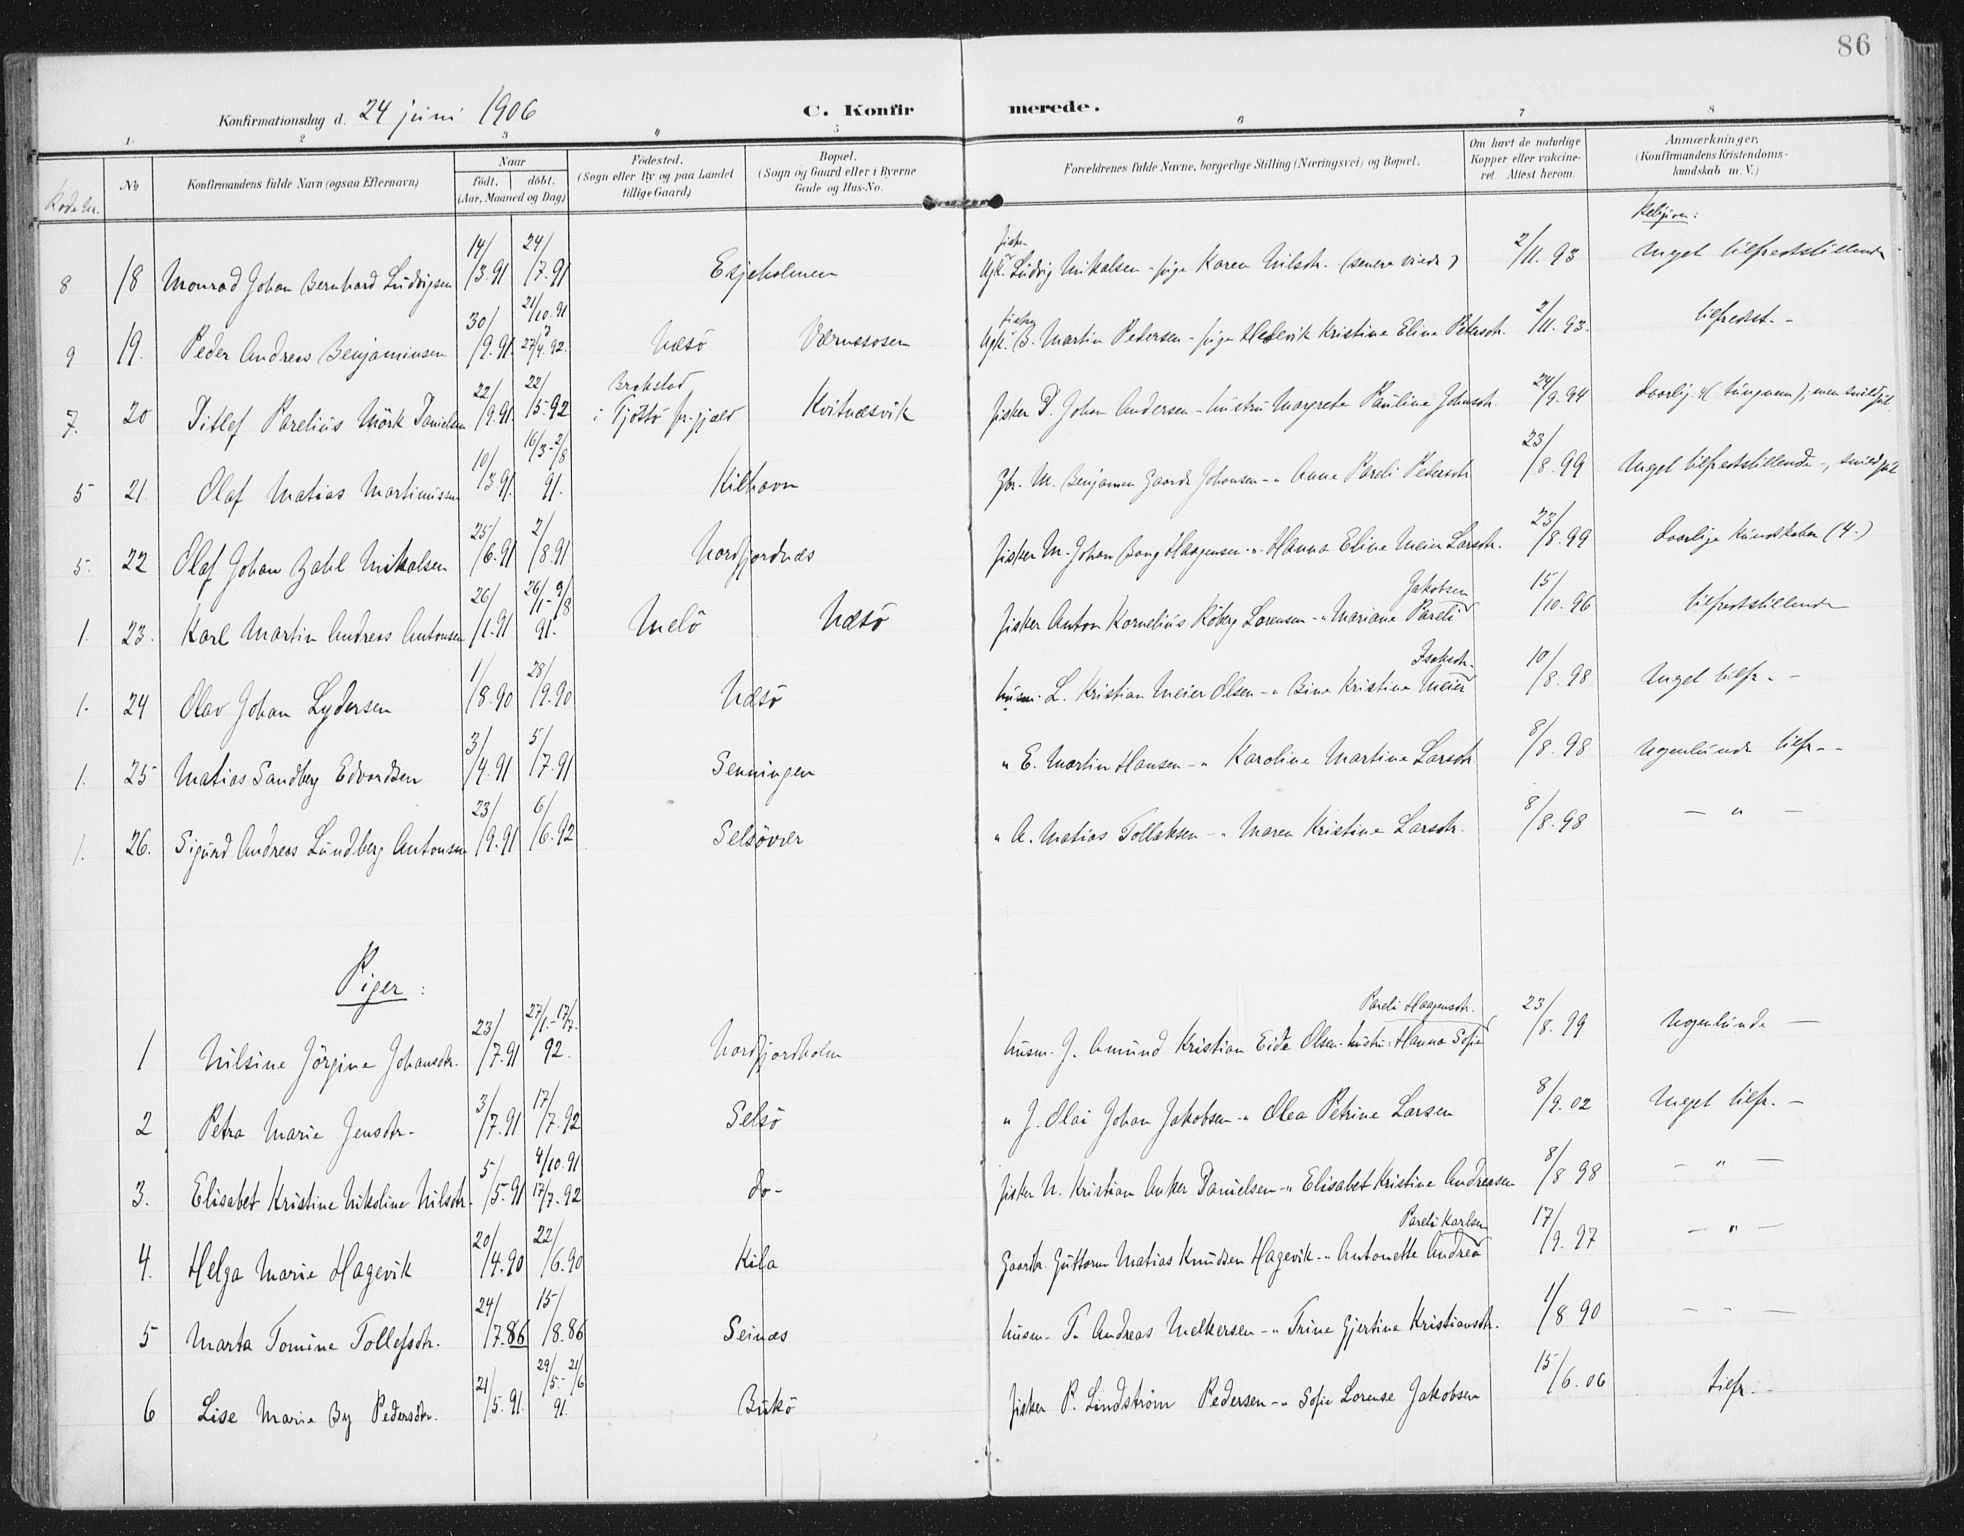 86
Konfirmationsdag d. 24 juni 1906 C. Konfirmerede.
1 2 3 " 5 6 7 8
Kode nr.
№
Konfirmandens fulde Navn (ogsaa Efternavn)
Naar
födt. döbt.
(Aar, Maaned og Dag)
Födested.
(Sogn eller By og paa Landet
tillige Gaard)
Bopæl.
(Sogn og Gaard eller i Byerne
Gade og Hus-No.
Forældrenes fulde Navne, borgerlige Stilling (Næringsvei) og Bopæl.
Om havt de naturlige
Kopper eller vakcine-
ret Attest herom.
Anmærkninger.
(Konfirmandens Kristendoms-
kundskab m. V.)
Religion:
8 18 Monrad Johan Bernhard Ludvigsen 14/3.91 24/7.91 Esjeholmen Ugk. fisker Ludvig Mikalsen - pige Karen Nilsdtr. (senere viede) 2/11.93 Meget tilfredsstillende
9 19. Peder Andreas Benjaminsen 30/9.91 21/10.91 27/4.92. Næsö Værnæsosen Ugk. fisker B. Martin Pedersen - pige Hedevik Kristine Eline Petersdtr. 2/11.93. tilfredsst. -
7. 20 Ditlef Parelius Mörk Danielsen 22/9.91. 22/5.92 Brakstad i Tjöttö pr.gjæld Kvitnæsvik fisker D. Johan Andersen - hustru Margrete Pauline Johnsdtr. 24/9.94
5 21. Olaf Matias Martinussen 10/3.91. 16/3 - 2/8 91. Kilhavn Gbr. M. Benjamin Gaarde Johansen - " Anna Pareli Pedersdtr 23/8.99 Meget tilfredsstillende -,
5. 22 Olaf Johan Zahl Mikalsen 25/6.91 2/8.91 Nordfjordnæs fisker M. Johan Bang Haagensen - " Hanna Eline Meier Larsdtr. 23/8.99 Daarlige Kundskaber (4.)
1. 23. Karl Martin Andreas Antonsen 26/1.91 26/1 - 9/8 91. Melö Næsö fisker Anton Kornelius Röberg Lorensen - " Mariane Pareli Jakobsen 15/10.96 tilfredsstillende
1. 24 Olav Johan Lydersen 1/8.90 28/9.90 Næsö husm. L. Kristian Meier Olsen - " Bine Kristine Meier Isaksdtr. 10/8.98 Meget tilfr. -
1. 25 Matias Sandberg Edvardsen 3/4.91 5/7.91 Senningen " E. Martin Hansen - " Karoline Martine Larsdtr 8/8.98 Nogenlunde tilfr. -
1. 26. Sigurd Andreas Lundberg Antonsen 23/9.91 6/6.92 Selsövær " A. Matias Tollaksen - " Maren Kristine Larsdtr. 8/8.98 - " -
Piger:
1 Nilsine Jörgine Johansdtr. 23/7.91 27/1. - 17/7. 92. Nordfjordholm husm. J. Amund Kristian Eide Olsen - hustru: Hanna Sofie Pareli Haagensdtr. 23/8.99 Nogenlunde -
2 Petra Marie Jensdtr. 3/7.91 17/7.92 Selsö " J. Olai Johan Jakobsen - " Olea Petrine Larsen 8/9.02 Meget tilfr. -
3. Elisabet Kristine Nikoline Nilsdtr. 5/5.91 4/10.91 17/7.92 do- fisker N. Kristian Anker Danielsen - " Elisabet Kristine Andreasen 8/8 98 - " -
4. Helga Marie Hagevik 20/4.90 22/6.90 Kila Gaardbr. Guttorm Matias Knudsen Hagevik - " Antonette Andrea Pareli Karlsen 17/9.97 - " -
5 Marta Tomine Tollefsdtr. 24/7.86 15/8.86 Seinæs husm. T. Andreas Melkersen - " Trine Gjertine Kristiansdtr. 1/8 90 - " -
6 Lise Marie By Pedersdtr. 21/5.91 29/5. - 21/6 91. Bukö fisker P. Lindström Pedersen - " Sofie Lorense Jakobsen 15/6.06 tilfr. -